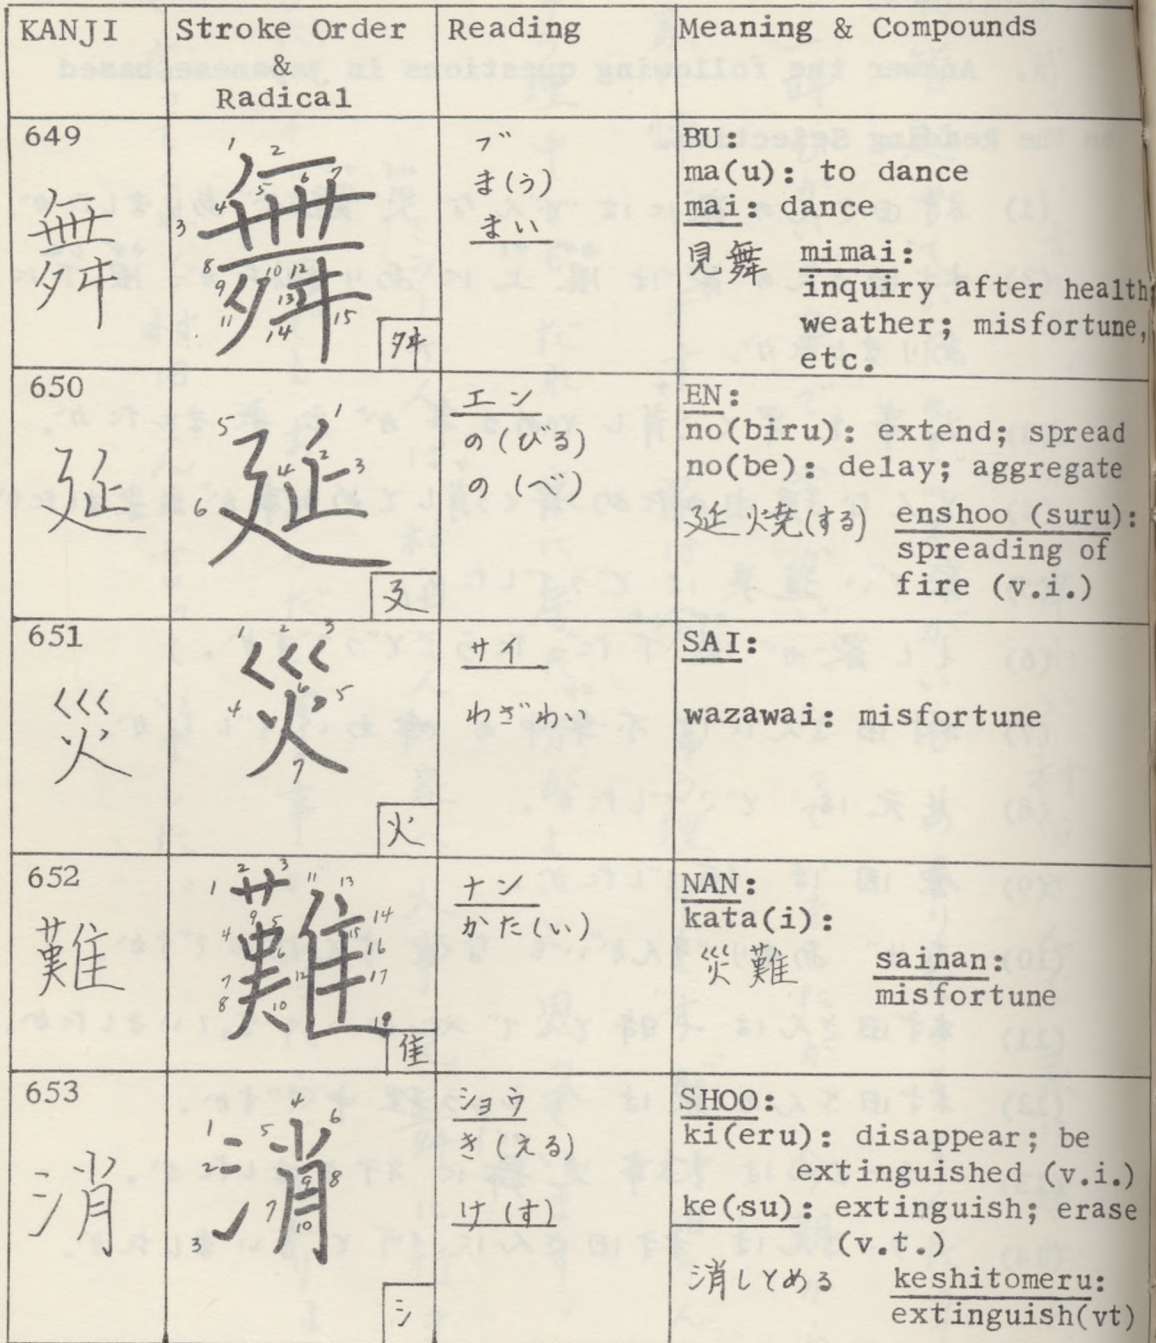 KANJI
Stroke Order
&
Radical
Reading
Meaning & Compounds
649
舞
1 2 3 4 5 6 7 8 9 10 11 12 13 14 15
舞
舛
ブ
ま(う)
まい
BU:
ma(u): to dance
mai: dance
見舞 mimai:
inquiry after health;
weather; misfortune,
etc.
650
延
1 2 3 4 5 6
延
廴
エン
の(びる)
の(べ)
EN:
no(biru): extend; spread
no(be): delay; aggregate
延焼(する) enshoo (suru):
spreading of
fire (v.i.)
651
災
1 2 3 4 5 6 7
災
火
サイ
わざわい
SAI:
wazawai: misfortune
652
難
難
隹
ナン
かた(い)
NAN:
kata(i):
災難 sainan:
misfortune
653
消
1 2 3 4 5 6 7 8 9 10
消
氵
ショウ
き(える)
け(す)
SHOO:
ki(eru): disappear; be
extinguished (v.i.)
ke(su): extinguish; erase
(v.t.)
消しとめる keshitomeru:
extinguish(vt)